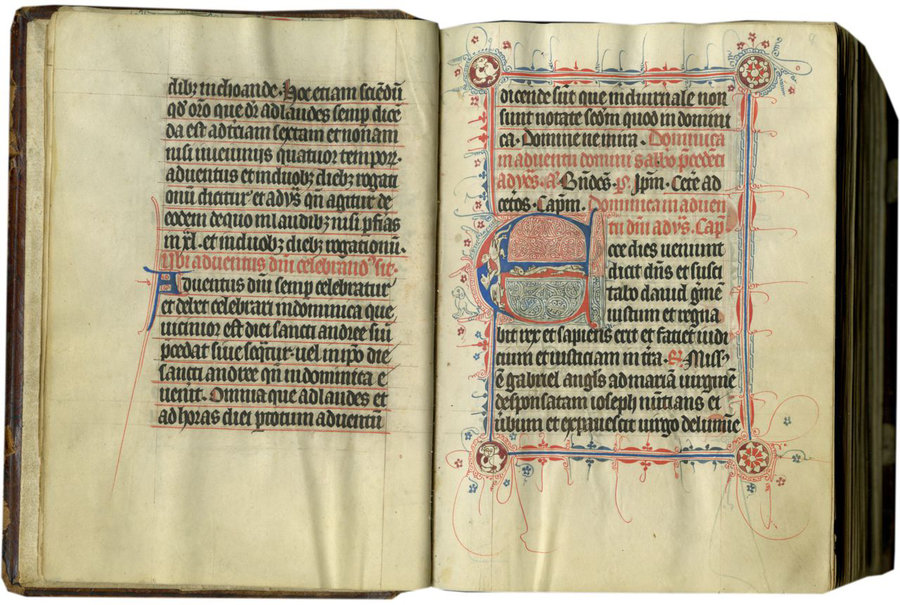 dibꝫ inchoande. Hoc etiam sciēdū
qđ orō que dr̄ ad laudes semꝑ dice
da est ad terciam sextam et nonam
nisi in ieiuniis quatuor tempoꝝ.
aduentus et in duobꝫ diebꝫ rogati
onū dicitur et ad vs̄ qn̄ agitur de
eodem de quo in laudibꝫ nisi ꝑ ferias
in xl. et in duobꝫ diebꝫ rogationū.
Ubi aduentus dnī celebrand' sit.
Aduentus dnī semꝑ celebratur
et debet celebrari in dominica que
vicinior est diei sancti andree siue
p̄cedat siue seq̄tur. vel in ip̄o die
sancti andree qn̄ in dominica e
uenit. Omnia que ad laudes et
ad horas diei ꝓ totum aduentū
dicende sūt que in diurnale non
sunt notate scd̄m quod in domini
ca. Domine ne in ira. Dominica
in aduentu domini sabbō p̄cedēti
ad vs̄. a. Bn̄dc̄s. ps̄. Ip̄m. Cetē ad
cetōs. Capm̄. Dominica in aduen
tu dnī ad vs̄. Cap̄
Ecce dies ueniunt
dicit dn̄s et susci
tabo dauid gmē
iustum et regna
bit rex et sapiens erit et faciet iudi
cium et iusticiam in tr̄a. ℟. Miss'
ē gabriel angls̄ ad mariā uirginē
desponsatam ioseph nūtians ei
uerbum et expauescit uirgo de lumīe